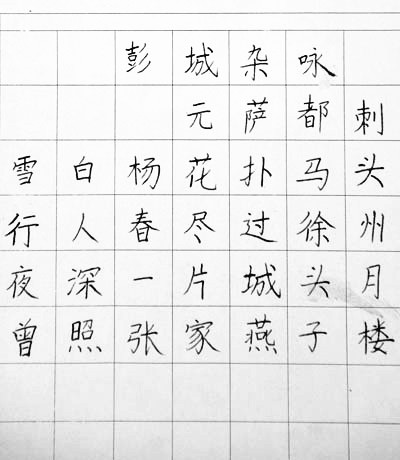 彭城杂咏
元萨都刺
雪白杨花扑马头
行人春尽过徐州
夜深一片城头月
曾照张家燕子楼